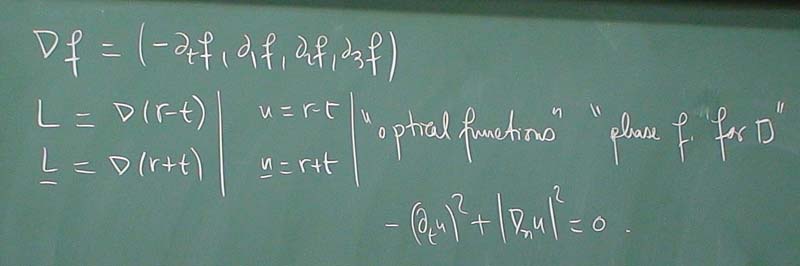 Df = (-∂tf, ∂1f, ∂2f, ∂3f)
L = D(r-t) | u = r-t | "optical functions" "phase f. for □"
L̲ = D(r+t) | u̲ = r+t
-(∂tu)² + |Dxu|² = 0.